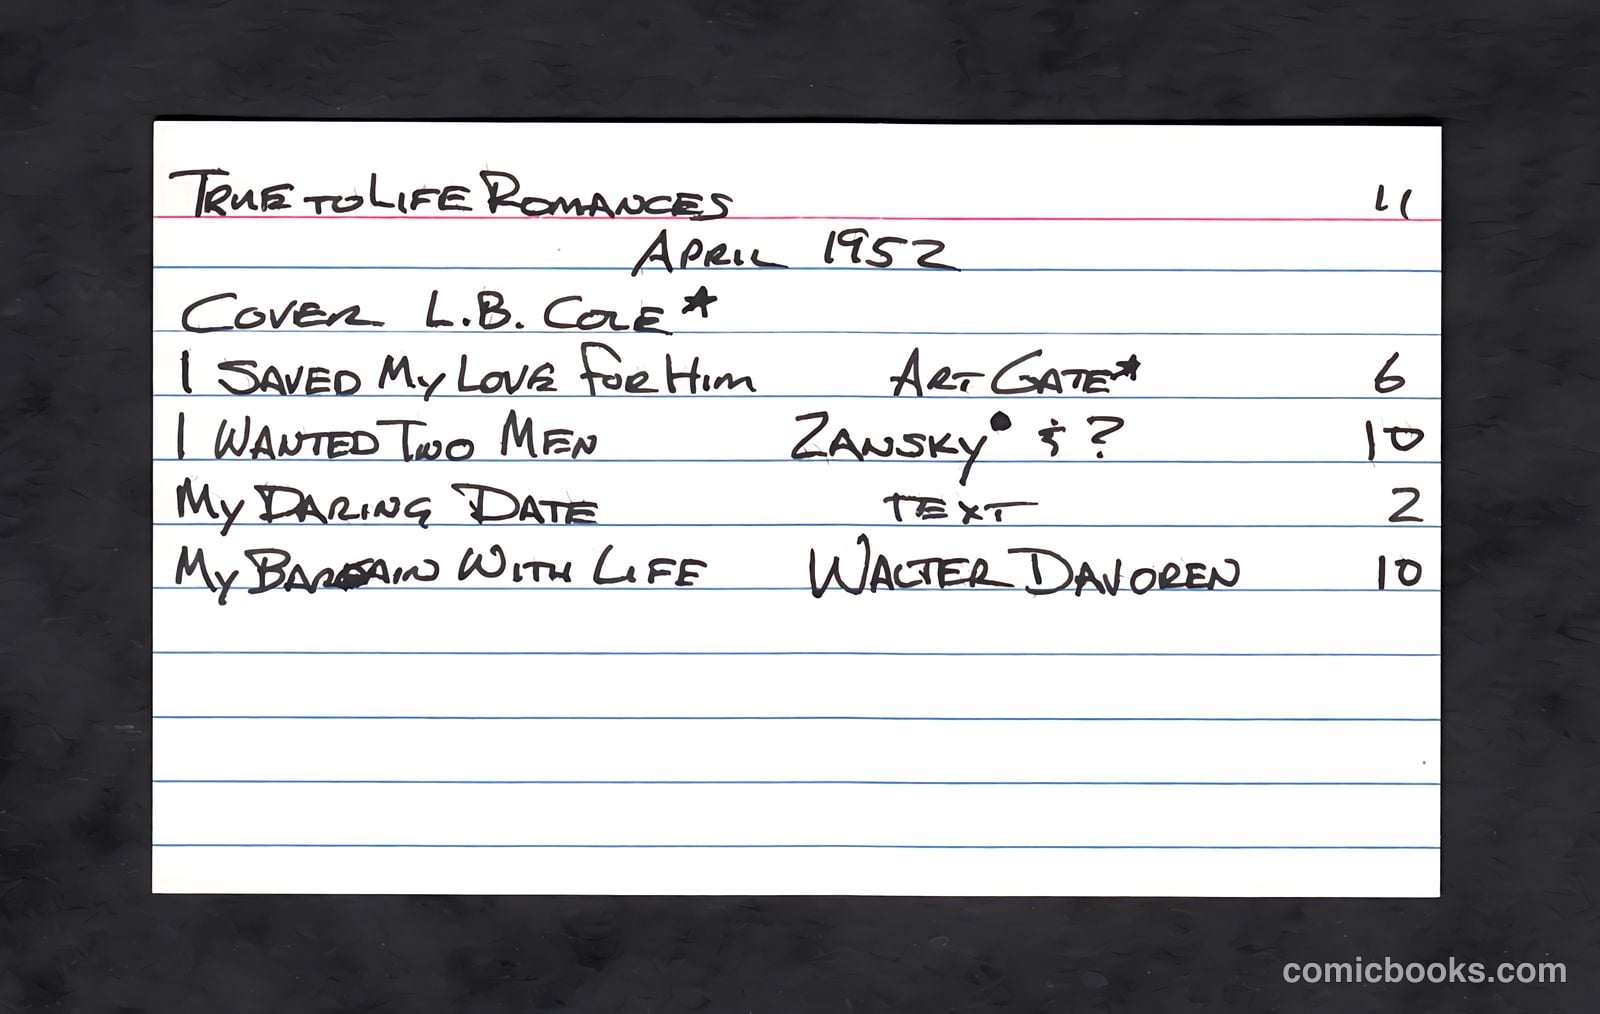 TRUE TO LIFE ROMANCES 11
APRIL 1952
COVER L.B. COLE*
I SAVED MY LOVE FOR HIM ART GATE* 6
I WANTED TWO MEN ZANSKY• & ? 10
MY DARING DATE TEXT 2
MY BARGAIN WITH LIFE WALTER DAVOREN 10
comicbooks.com